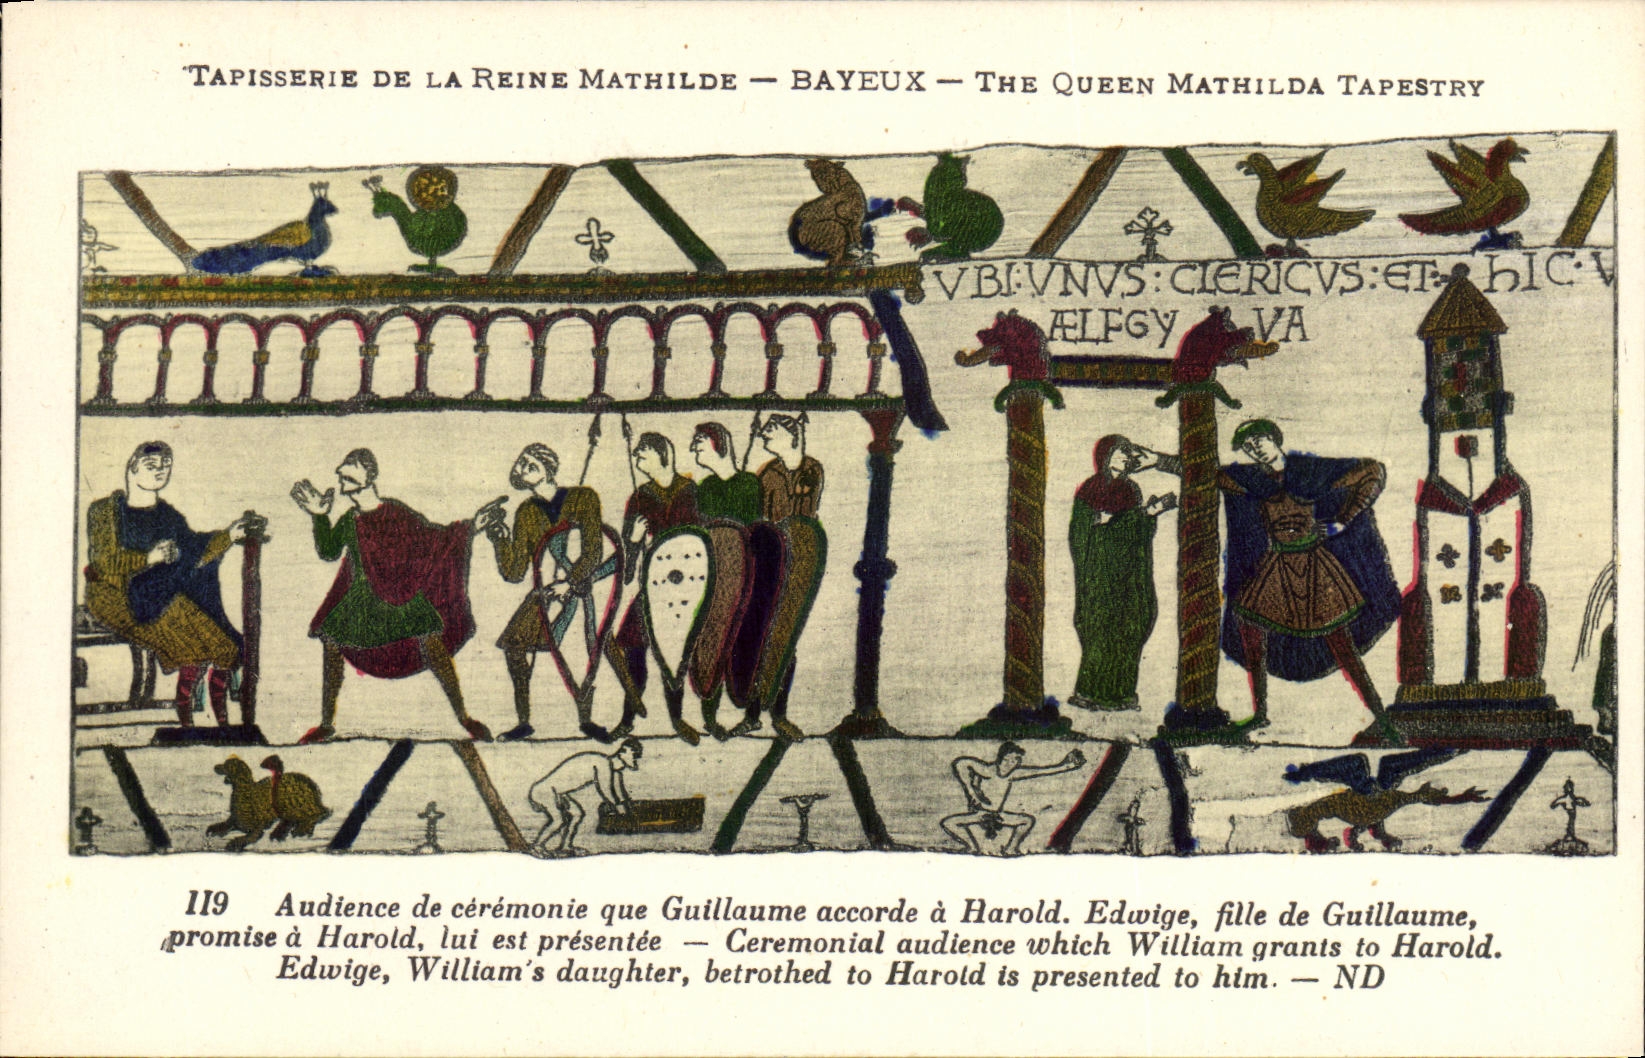 TAPISSERIE DE LA REINE MATHILDE — BAYEUX — THE QUEEN MATHILDA TAPESTRY
VBI:VNVS:CLERICVS:ET: hIC·V
ÆLFGYVA
119 Audience de cérémonie que Guillaume accorde à Harold. Edwige, fille de Guillaume,
promise à Harold, lui est présentée — Ceremonial audience which William grants to Harold.
Edwige, William's daughter, betrothed to Harold is presented to him. — ND